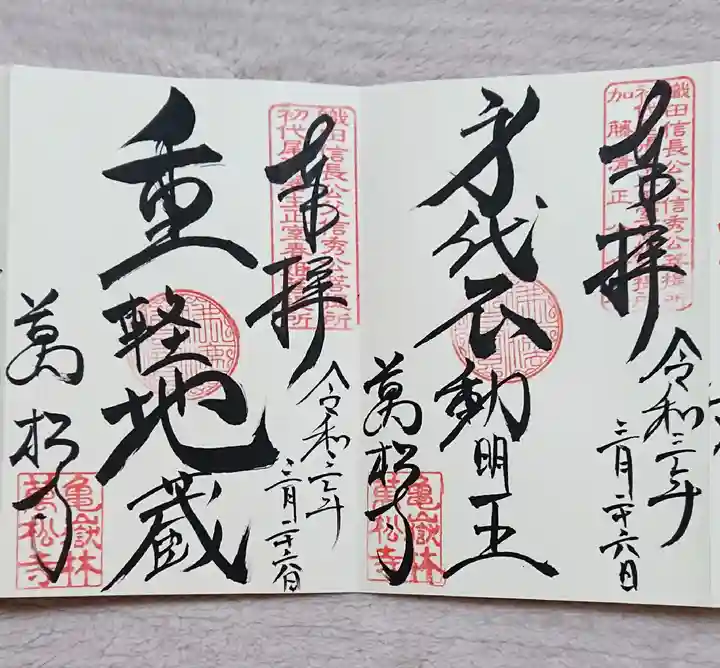 奉拝
令和三年
三月二十六日
織田信長公父信秀公菩提所
加藤清正
身代不動明王
萬松寺
亀嶽林
萬松寺
奉拝
令和三年
三月二十六日
織田信長公父信秀公菩提所
重軽地蔵
萬松寺
亀嶽林
萬松寺